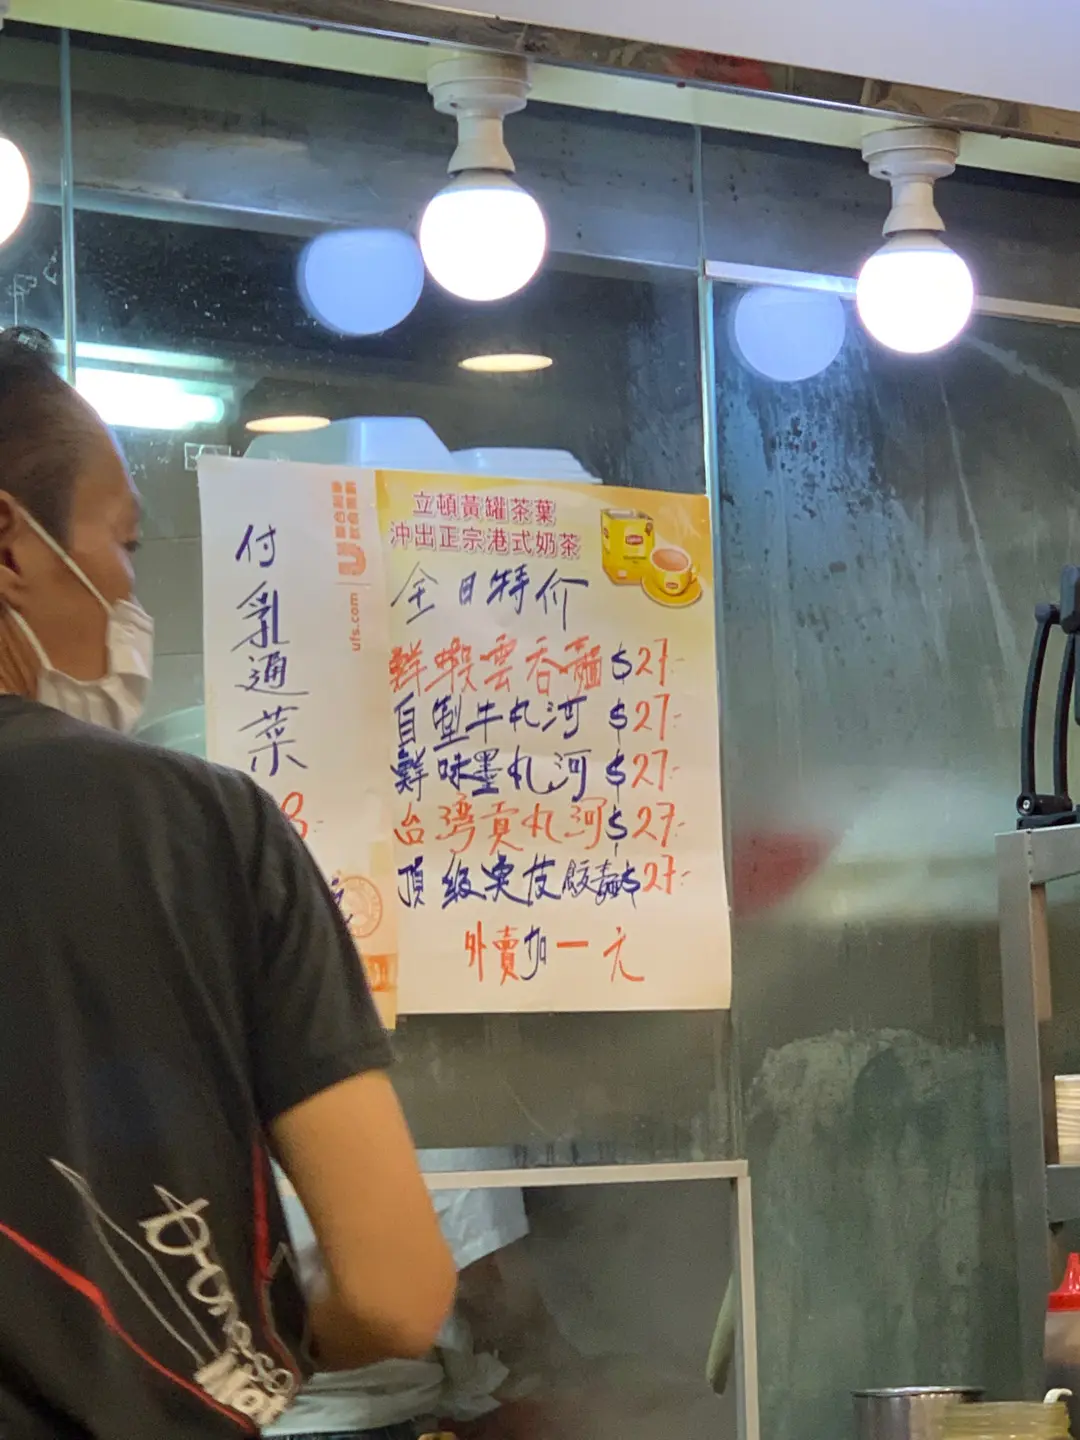 付乳通菜
UNILEVER
FOOD
ufs.com
立頓黃罐茶葉
沖出正宗港式奶茶
Lipton
全日特价
鮮蝦雲吞麵 $27.-
自製牛丸河 $27.-
鮮味墨丸河 $27.-
台灣貢丸河 $27.-
頂級 $27.-
外賣加一元
Hot